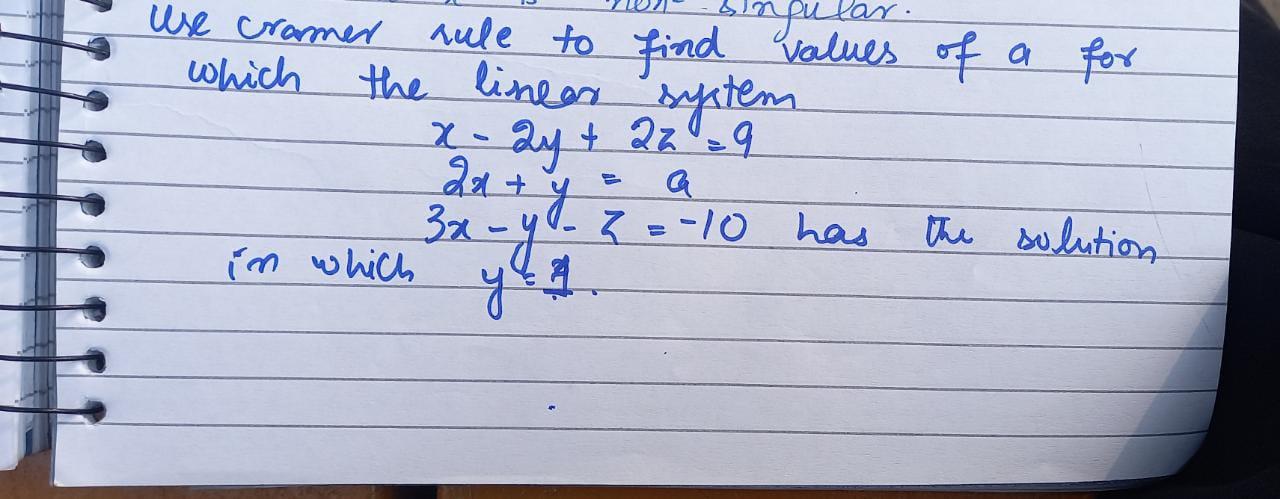 non-singular.
Use cramer rule to find values of a for
which the linear system
x - 2y + 2z = 9
2x + y = a
3x - y - z = -10 has the solution
in which y =